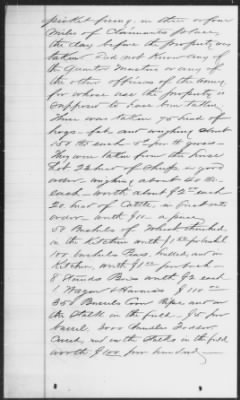 picket firing, in three or four
miles of Claimants place,
the day before the property was
taken. Did not know any of
the Quarter Masters or any of
the other officers of the army
for whose use the property is
supposed to have been taken
There was taken 75 head of
hogs - fat and weighing about
150 lbs each - gross.
They were taken from the
had 26 head of Sheep, in good
order - weighing about 40 lbs.
each - worth about $2 each
20 head of Cattle, in first rate
order - worth $10 a piece
50 Bushels of Wheat thrashed
in the Kitchen worth $1 per bushel
100 bushels Peas, hulled, and in
Kitchen, worth $1 per bush -
8 Stands Bees worth $2 each
1 Wagon & Harness $110 00
350 Barrels Corn ripe and on
the Stalk in the field - $5 per
barrel. 3000 bundles Fodder,
Cured, and in the Stacks in the field
worth $1.00 per hundred -